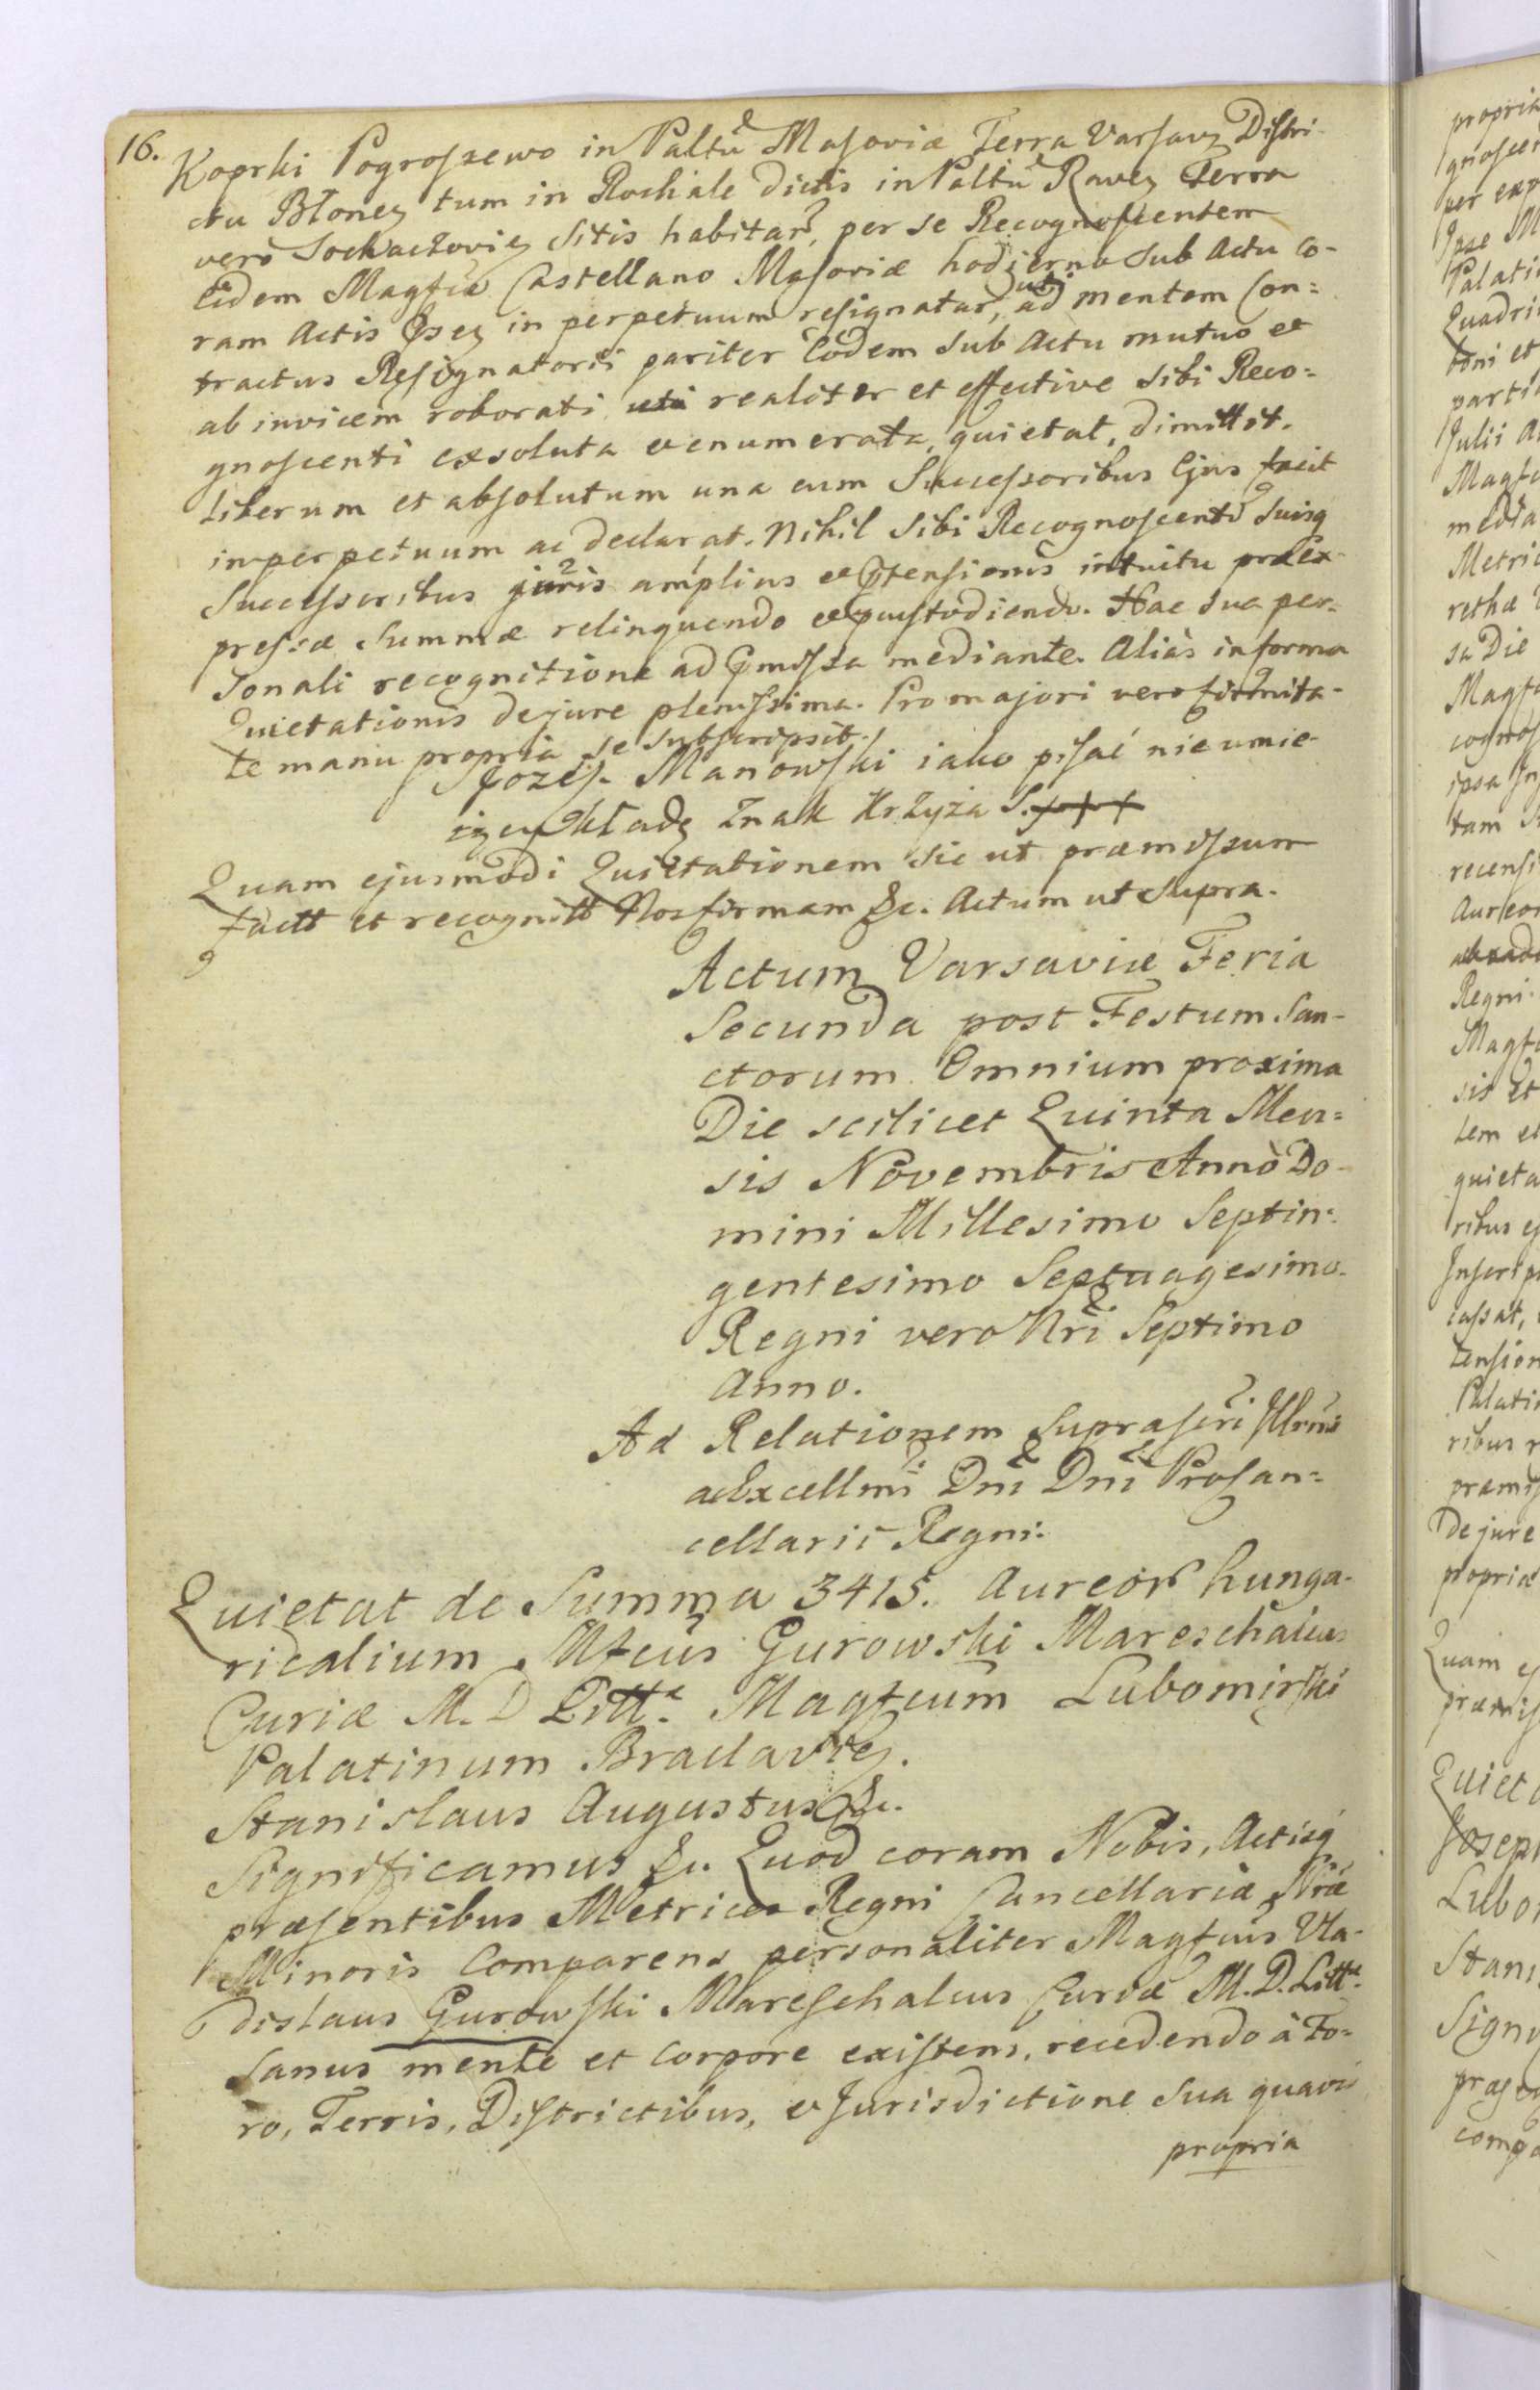 16.
Koprki Pogroszewo in Paltũ Masoviæ Terra Varsavz Distri-
ctu Błonez tum in Rochale dictis in Paltũ Ravez Terra
vero Sochaczoviz sitis habitañ, per se Recognoscentem
Eidem Magfco Castellano Masoviæ hodierno sub Actu co-
ram Actis Pssez in perpetuum resignatar, uti ad mentem Con=
tractus Resignatorii pariter Eodem sub Actu mutuo et
ab invicem roborati realiter et effective sibi Reco=
gnoscenti exsoluta et enumerata, quietat, dimittit.
Liberum et absolutum una cum Successoribus Ejus facit
in perpetuum ac declarat. Nihil sibi Recognoscenti suisq
Successoribus juris amplius et Ptensionis intuitu præex-
pressæ Summæ relinquendo et custodiendo. Hac sua per-
sonali recognitione ad Pmissa mediante. Aliàs in forma
Quietationis de jure plenissima. Pro majori vero firmita-
te manu propria se subscripsit.
Jozef Manowski iako pisać nie umie-
iący kładę Znak Krzyża S. +++
Quam ejusmodi Quietationem sic ut præmissum
factt et recognitt Nos firmam &c. Actum ut supra.
Actum Varsaviæ Feria
Secunda post Festum San-
ctorum Omnium proxima
Die scilicet Quinta Men=
sis Novembris Anno Do-
mini Millesimo Septin=
gentesimo Septuagesimo.
Regni vero Nri Septimo
Anno.
Ad Relationem suprascri Illrmi
ac Excellmi Dni Dni Procan=
cellarii Regni.
Quietat de Summa 3415. Aureor hunga-
ricalium Mfcus Gurowski Mareschalcus
Curiæ M. D. Littæ. Magfcum Lubomirski
Palatinum Braclaviez.
Stanislaus Augustus &c.
Significamus &c. Quod coram Nobis, Actisq
præsentibus Metrices Regni Cancellariæ Nræ
Minoris Comparens personaliter Magfcus Vla-
dislaus Gurowski Mareschalcus Curiæ M. D. Littæ.
sanus mente et corpore existens, recedendo à Fo=
ro, Terris, Districtibus, et Jurisdictione sua quavis
propria